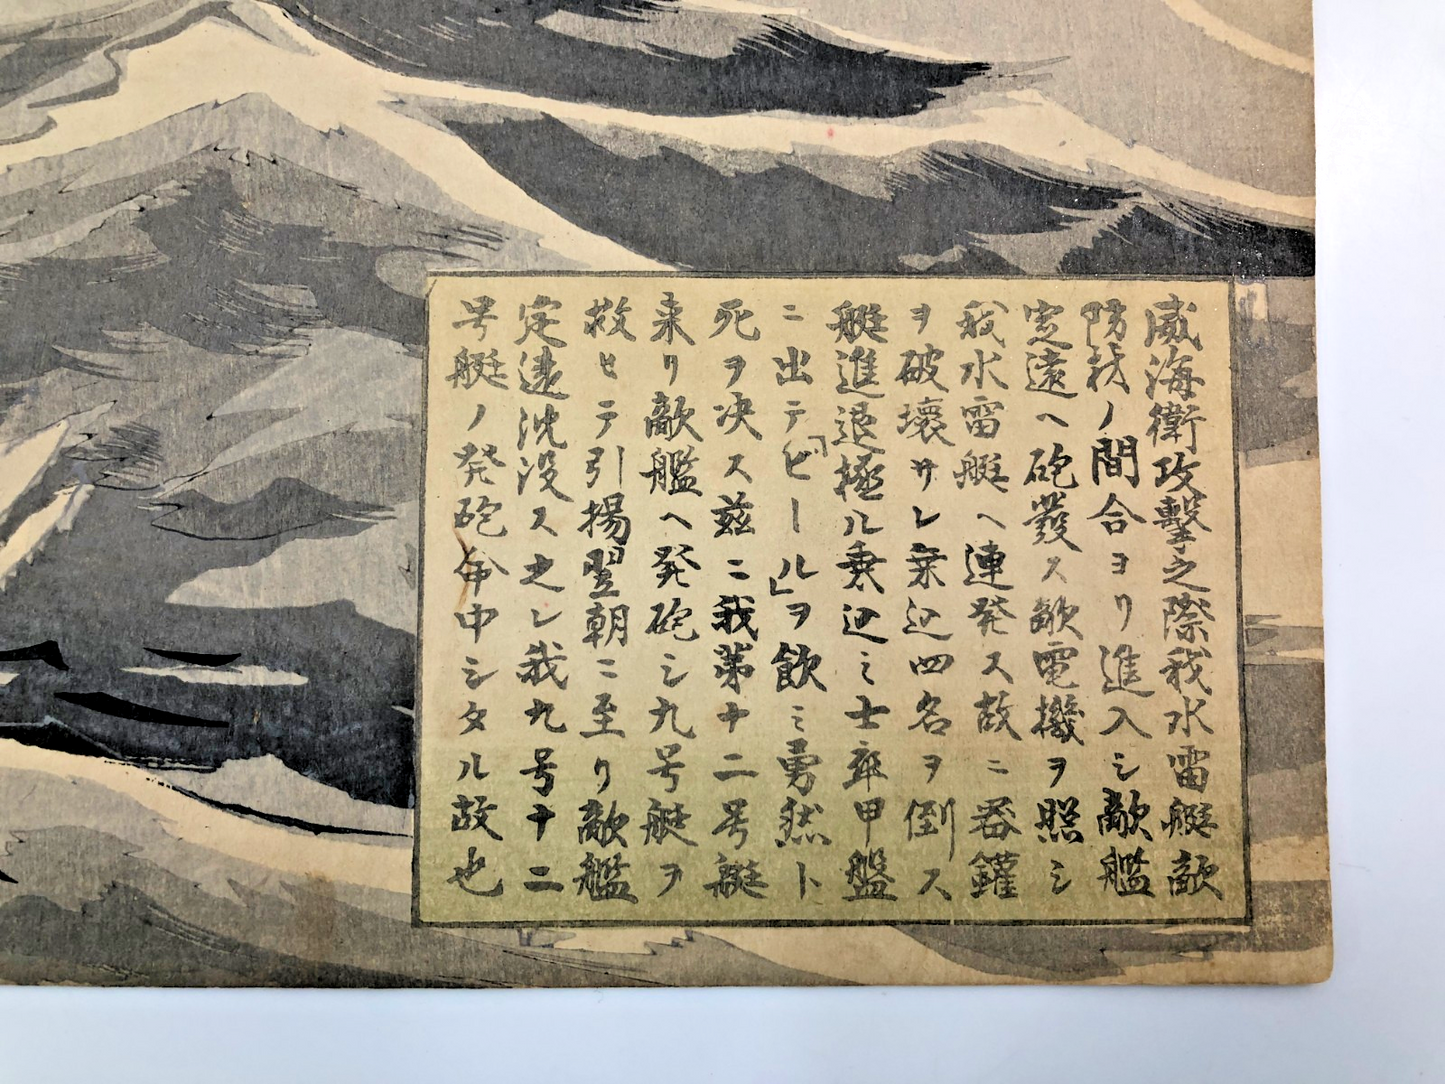 威海衛攻擊之際我水雷艇敵
防材ノ間合ヨリ進入シ敵艦
定遠ヘ砲發ス敵電機ヲ照シ
我水雷艇ヘ連発ス故ニ器鑵
ヲ破壊サレ乗込四名ヲ倒ス
艇進退極ル乗込ミ士卒甲盤
ニ出テ「ビール」ヲ飲ミ勇然ト
死ヲ决ス茲ニ我第十二号艇
来リ敵艦ヘ発砲シ九号艇ヲ
救ヒテ引揚翌朝ニ至リ敵艦
定遠沈没ス之レ我九号十二
号艇ノ発砲命中シタル故也